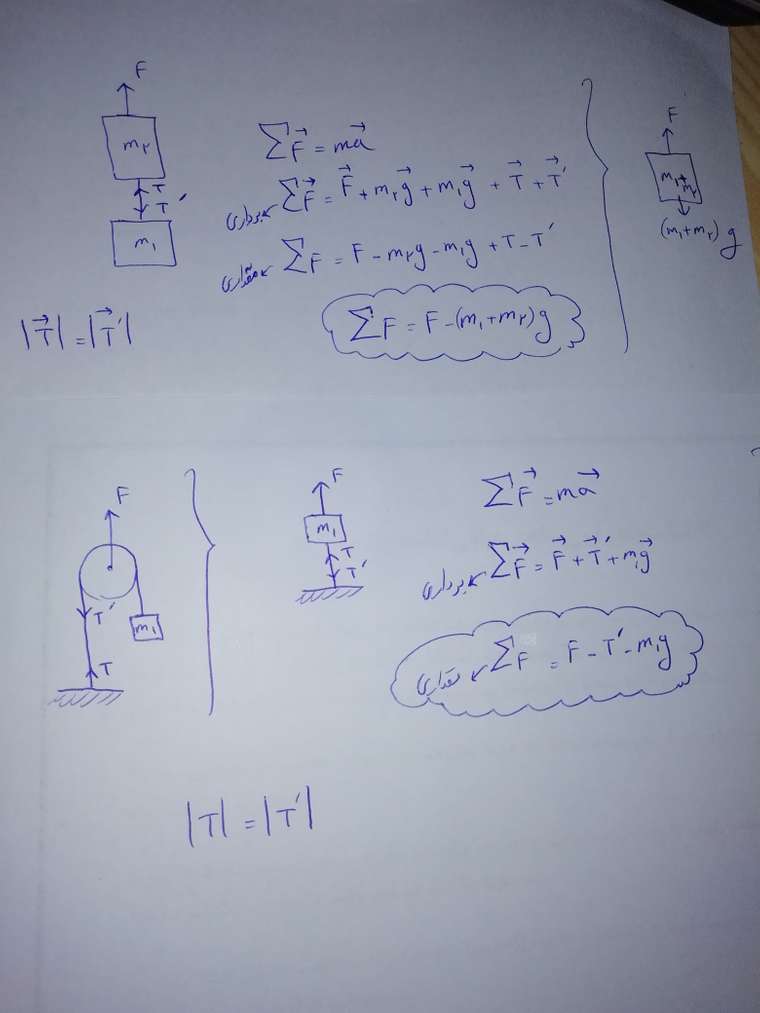 F
m۲
T
T'
m۱
|T⃗| = |T⃗'|
ΣF⃗ = ma⃗
برداری ΣF⃗ = F⃗ + m۲g⃗ + m۱g⃗ + T⃗ + T⃗'
مقداری ΣF = F - m۲g - m۱g + T - T'
ΣF = F - (m۱+m۲)g
F
m۱+m۲
(m۱+m۲)g
F
T'
m۱
T
F
m۱
T
T'
ΣF⃗ = ma⃗
برداری ΣF⃗ = F⃗ + T⃗' + m۱g⃗
مقداری ΣF = F - T' - m۱g
|T| = |T'|